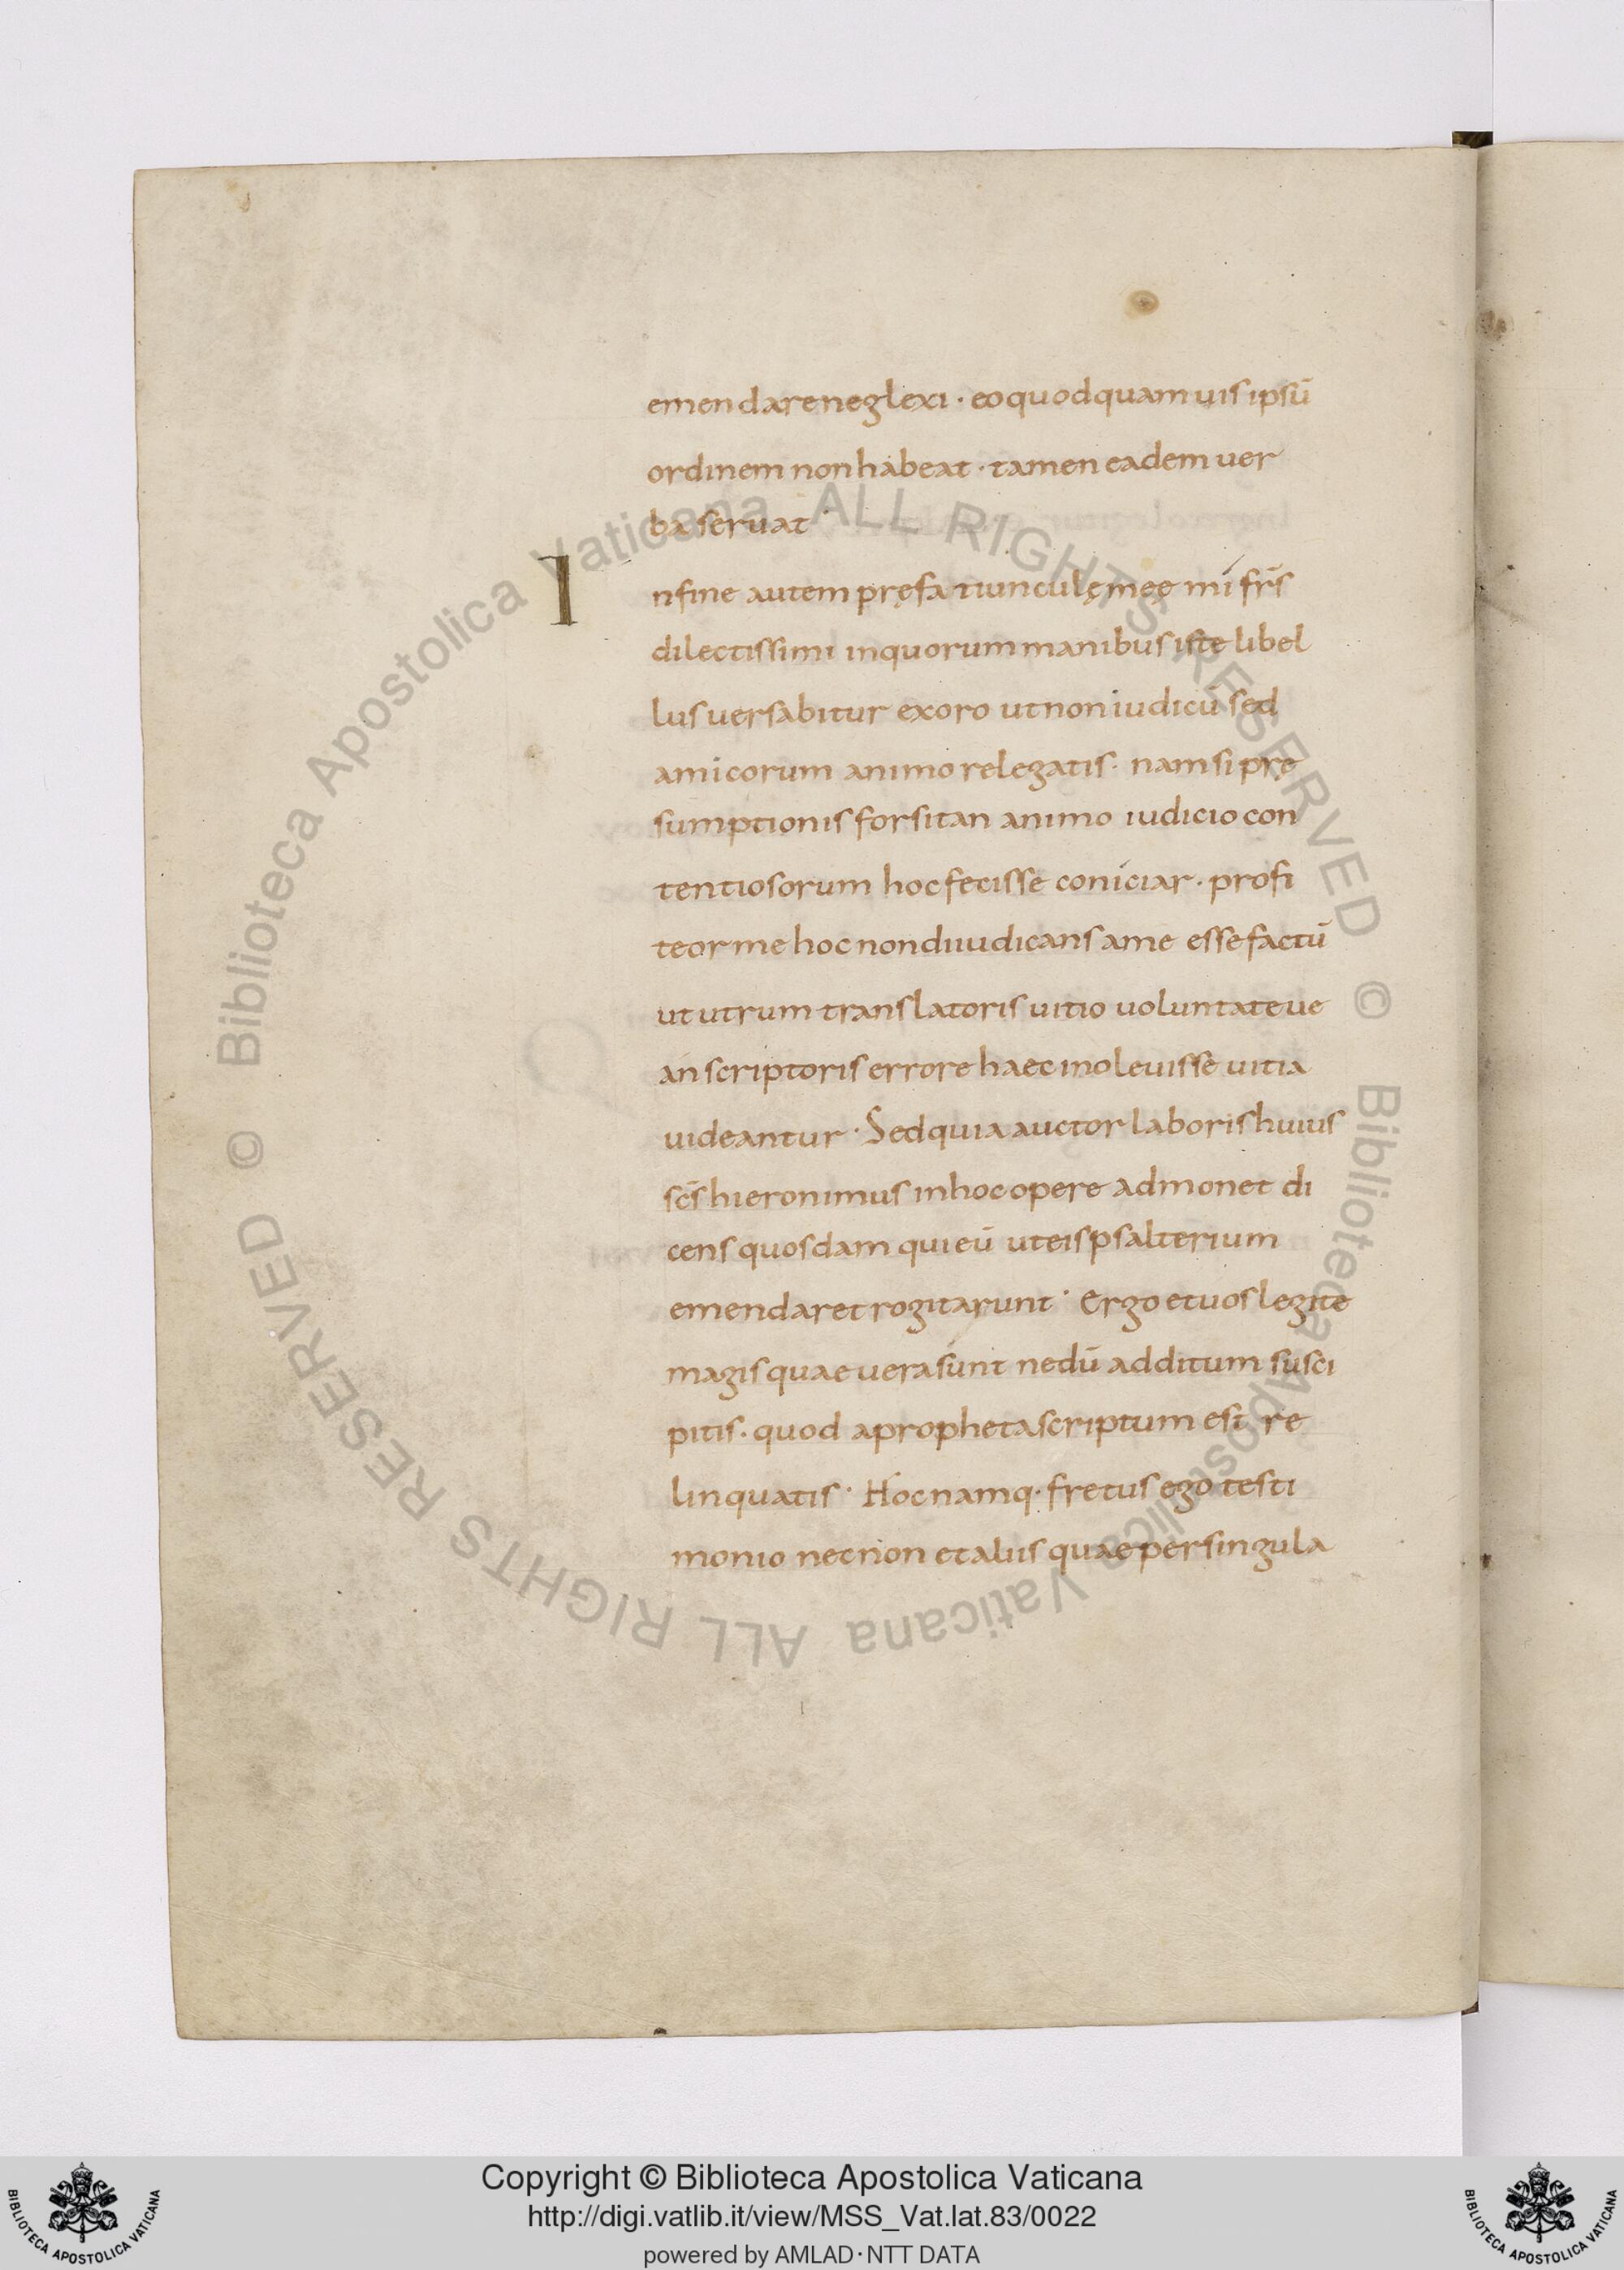 emendare neglexi · eo quod quam uis ipsū
ordinem non habeat · tamen eadem uer
ba seruat ·
In fine autem pręfatiunculę meę mí fr̄s
dilectissimi in quorum manibus iste libel
lus uersabitur exoro ut non iudicū sed
amicorum animo relegatis · nam si prę
sumptionis forsitan animo iudicio con
tentiosorum hoc fecisse coniciar · profi
teor me hoc non diiudicans a me esse factū
ut utrum translatoris uitio uoluntateue
an scriptoris errore haec inoleuisse uitia
uideantur · Sed quia auctor laboris huius
sc̄s hieronimus in hoc opere admonet di
cens quosdam qui eū ut eis psalterium
emendaret rogitarunt · Ergo et uos legite
magis quae uera sunt ne dū additum susci
pitis · quod a propheta scriptum est re
linquatis · Hoc namq· fretus ego testi
monio nec non et aliis quae per singula
© Biblioteca Apostolica Vaticana ALL RIGHTS RESERVED
© Biblioteca Apostolica Vaticana ALL RIGHTS RESERVED
Copyright © Biblioteca Apostolica Vaticana
http://digi.vatlib.it/view/MSS_Vat.lat.83/0022
powered by AMLAD·NTT DATA
BIBLIOTECA APOSTOLICA VATICANA
BIBLIOTECA APOSTOLICA VATICANA